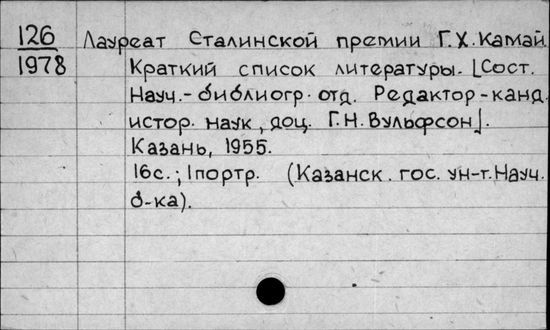 126 Лауреат Сталинской премии Г.Х.Камай.
1978 Краткий список литературы. [Сост.
Науч.-библиогр. отд. Редактор-канд.
истор. наук, доц. Г.Н.Вульфсон].
Казань, 1955.
16с.; 1портр. (Казанск. гос. ун-т. Науч.
б-ка).